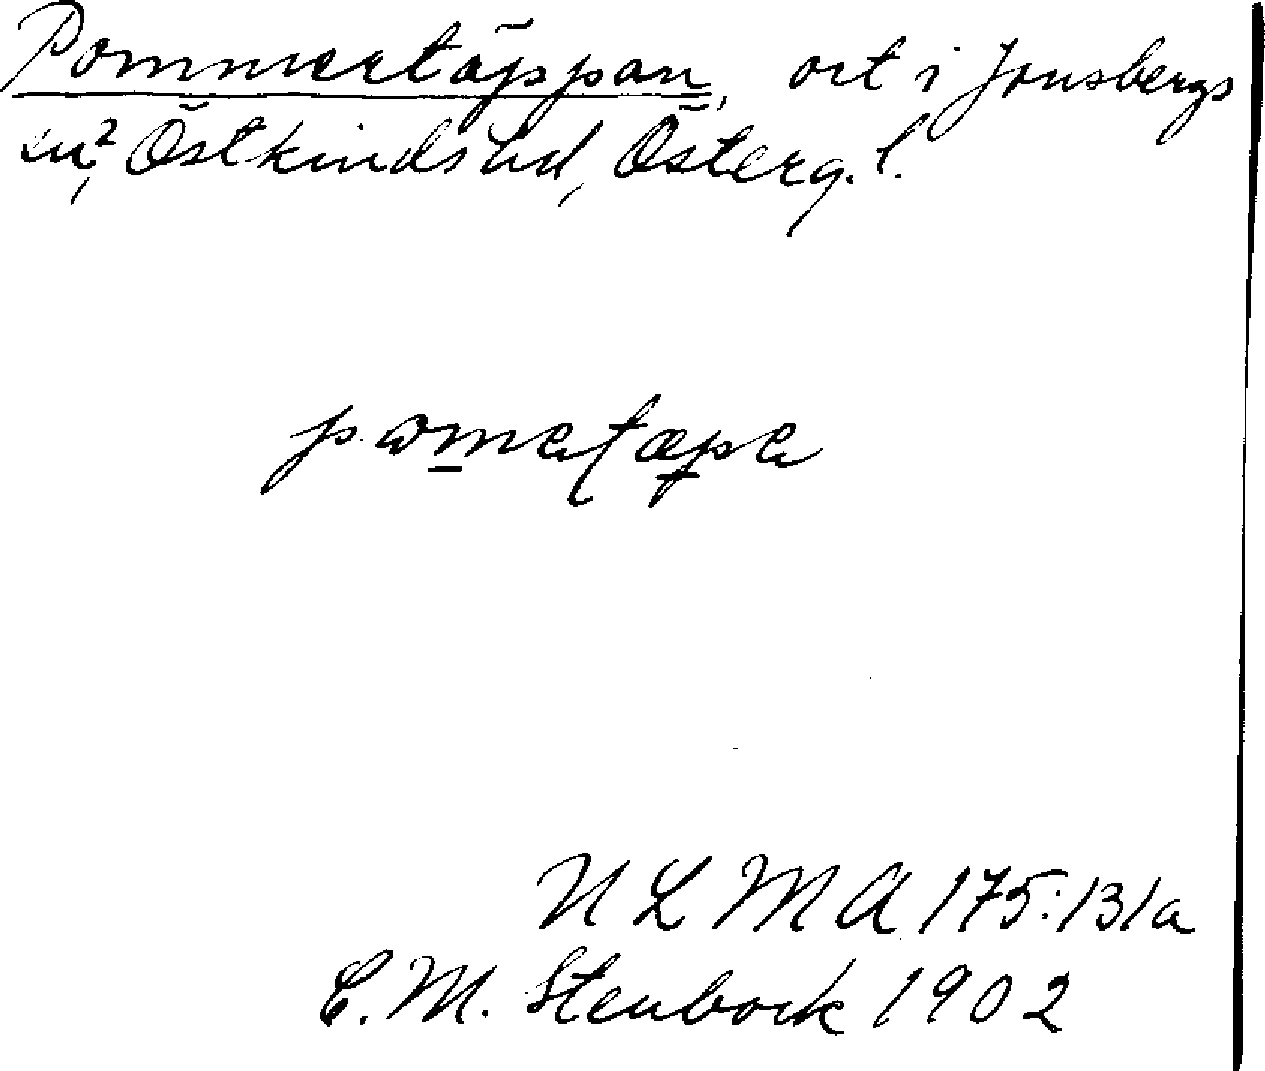 Pommertäppan, ort i Jonsbergs
sn, Östkinds hd, Österg. l.
pomatæpa
ULMA 175:131a
C. M. Stenbock 1902